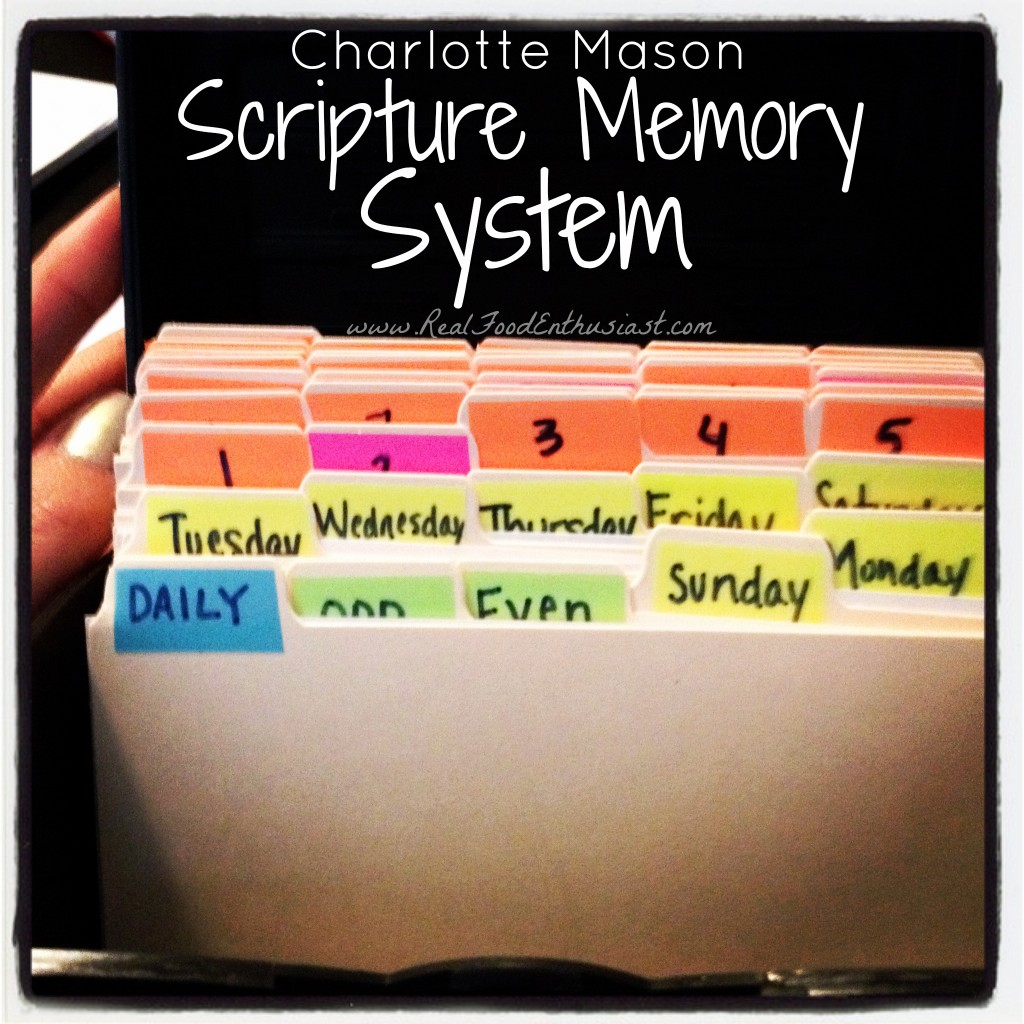 Charlotte Mason
Scripture Memory
System
www.RealFoodEnthusiast.com
1 2 3 4 5
Tuesday Wednesday Thursday Friday Saturday
DAILY ODD Even Sunday Monday